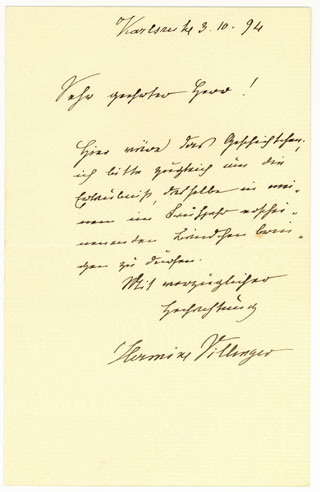 Karlsruhe 3. 10. 94
Sehr geehrter Herr!
Hier wäre das Geschichtchen;
ich bitte zugleich um die
Erlaubniß, dasselbe in mei-
nem im Frühjahr erschei-
nenden Bändchen brin-
gen zu dürfen.
Mit vorzüglicher
Hochachtung
Hermine Villinger